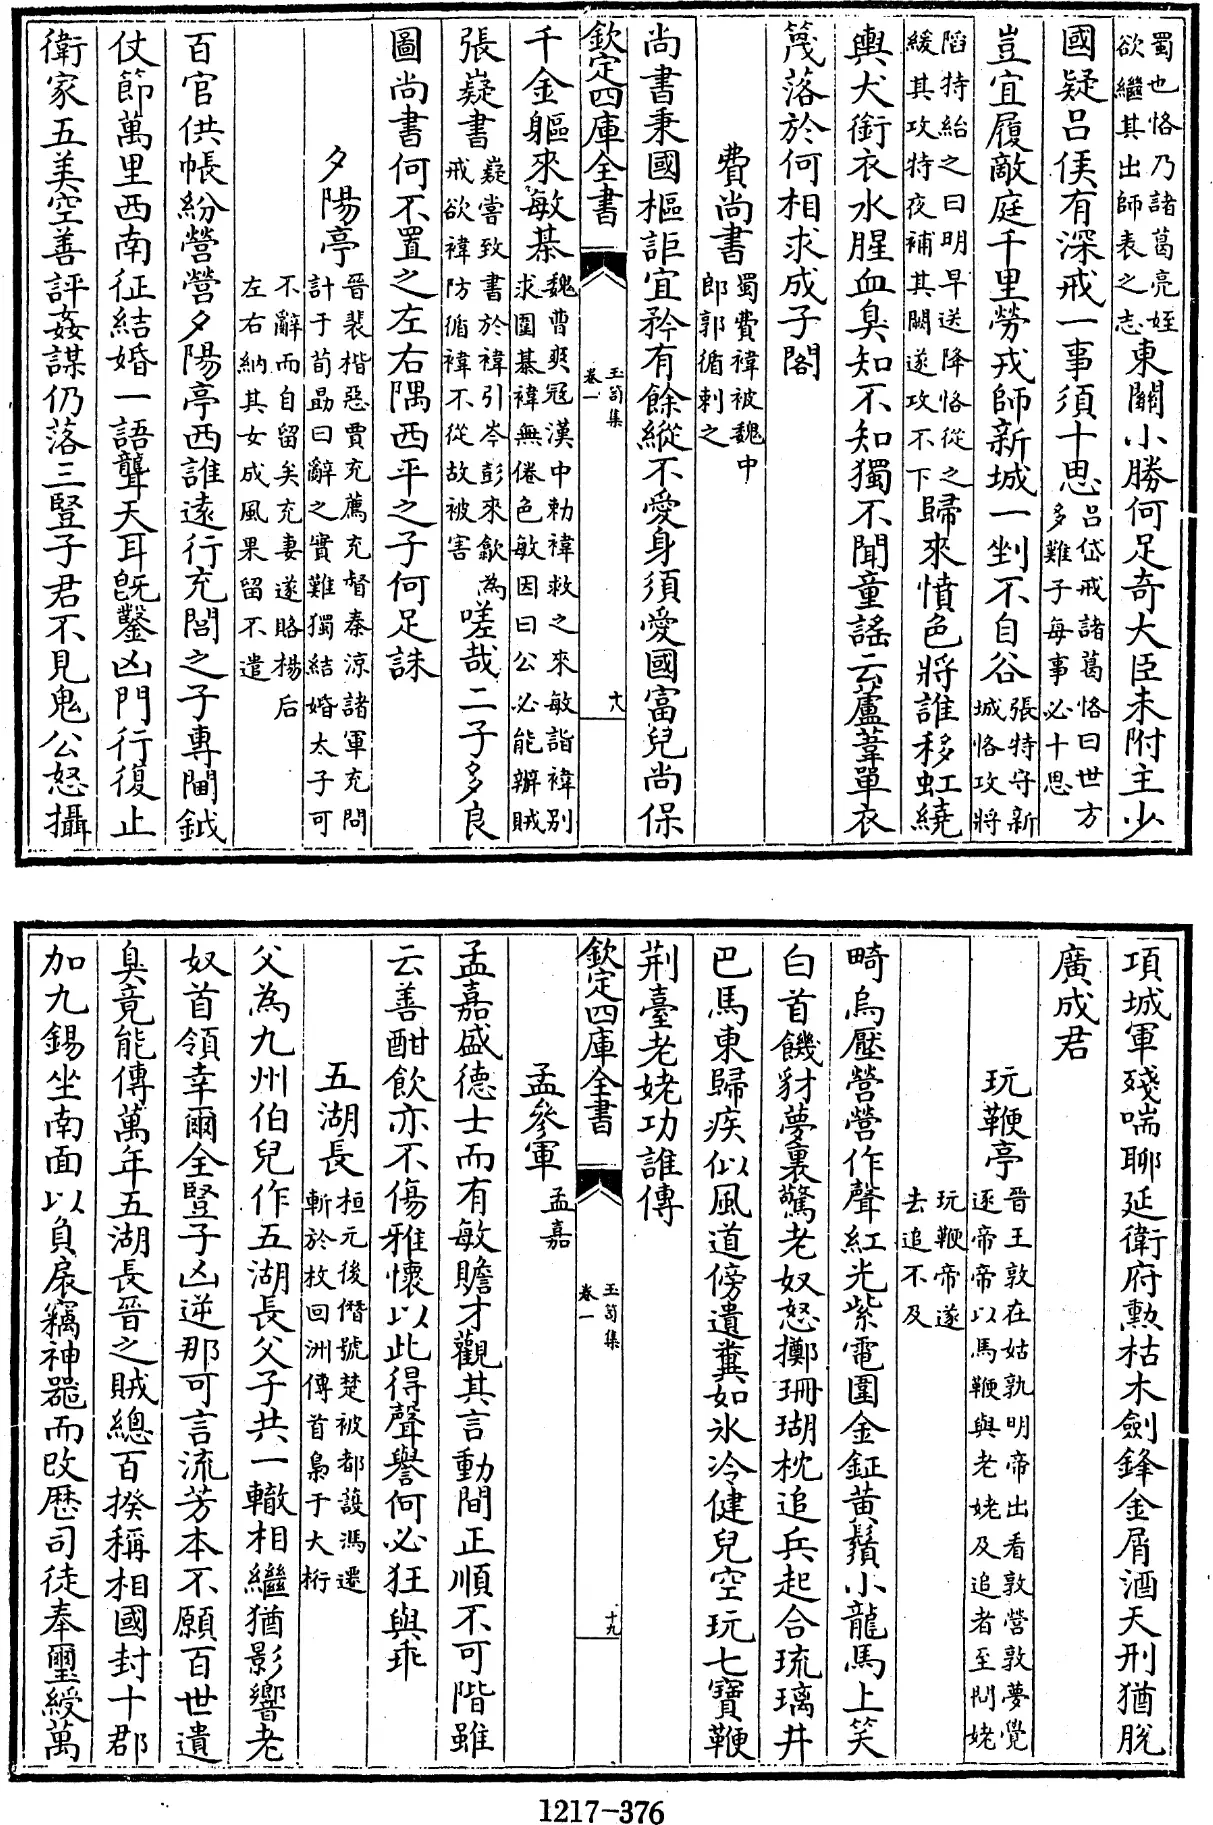 蜀也恪乃諸葛亮姪
欲繼其出師表之志東關小勝何足奇大臣未附主少
國疑呂侯有深戒一事須十思呂岱戒諸葛恪曰世方
多難子每事必十思
豈宜履敵庭千里勞戎師新城一剉不自谷張特守新
城恪攻將
陷特紿之曰明早送降恪從之
緩其攻特夜補其闕遂攻不下歸來憤色將誰移虹繞
輿犬銜衣水腥血臭知不知獨不聞童謠云蘆葦單衣
篾落於何相求成子閣
費尚書蜀費褘被魏中
郎郭循刺之
尚書秉國樞詎宜矜有餘縱不愛身須愛國富兒尚保
欽定四庫全書
玉笥集
卷一
十八
千金軀來敏棊魏曹爽冦漢中勅褘救之來敏詣褘别
求圍棊褘無倦色敏因曰公必能辦賊
張嶷書嶷嘗致書於褘引岑彭來歙為
戒欲褘防循褘不從故被害嗟哉二子多良
圖尚書何不置之左右隅西平之子何足誅
夕陽亭晉裴楷惡賈充薦充督秦涼諸軍充問
計于荀勗曰辭之實難獨結婚太子可
不辭而自留矣充妻遂賂楊后
左右納其女成風果留不遣
百官供帳紛營營夕陽亭西誰遠行充閭之子專閫鉞
仗節萬里西南征結婚一語聾天耳旣鑿凶門行復止
衛家五美空善評姦謀仍落三豎子君不見鬼公怒攝
項城軍殘喘聊延衛府勲枯木劍鋒金屑酒天刑猶脫
廣成君
玩鞭亭晉王敦在姑孰明帝出看敦營敦夢覺
逐帝帝以馬鞭與老姥及追者至問姥
玩鞭帝遂
去追不及
畸烏壓營營作聲紅光紫電圍金鉦黄鬚小龍馬上笑
白首饑豺夢裏驚老奴怒擲珊瑚枕追兵起合琉璃井
巴馬東歸疾似風道傍遺糞如氷冷健兒空玩七寶鞭
荆臺老姥功誰傳
欽定四庫全書
玉笥集
卷一
十九
孟參軍孟嘉
孟嘉盛德士而有敏贍才觀其言動間正順不可階雖
云善酣飲亦不傷雅懷以此得聲譽何必狂與乖
五湖長桓元後僭號楚被都護馮遷
斬於枚回洲傳首梟于大桁
父為九州伯兒作五湖長父子共一轍相繼猶影響老
奴首領幸爾全豎子凶逆那可言流芳本不願百世遺
臭竟能傳萬年五湖長晉之賊總百揆稱相國封十郡
加九錫坐南面以負扆竊神器而改歴司徒奉璽綬萬
1217-376